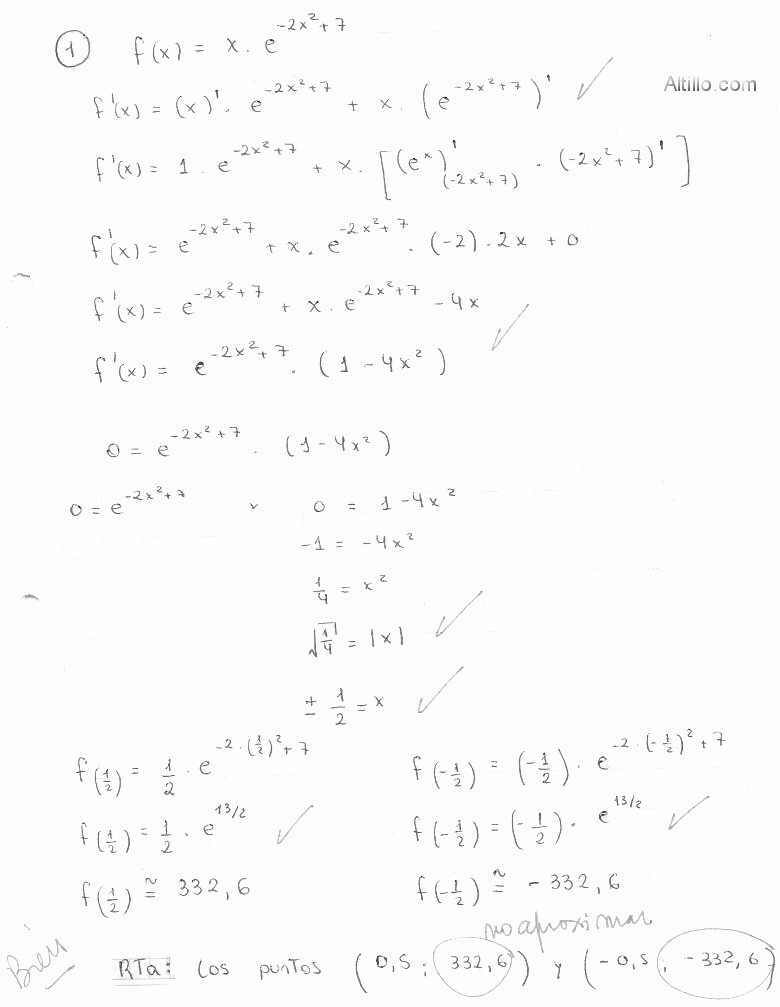 ① f(x) = x . e^{-2x²+7}
Altillo.com
f'(x) = (x)' . e^{-2x²+7} + x . (e^{-2x²+7})' ✓
f'(x) = 1 . e^{-2x²+7} + x . [(e^x)'_{(-2x²+7)} . (-2x²+7)']
f'(x) = e^{-2x²+7} + x . e^{-2x²+7} . (-2) . 2x + 0
f'(x) = e^{-2x²+7} + x . e^{-2x²+7} - 4x
f'(x) = e^{-2x²+7} . (1 - 4x²) ✓
0 = e^{-2x²+7} . (1 - 4x²)
0 = e^{-2x²+7} v 0 = 1 - 4x²
-1 = -4x²
1/4 = x²
√(1/4) = |x| ✓
± 1/2 = x ✓
f(1/2) = 1/2 . e^{-2.(1/2)²+7} f(-1/2) = (-1/2) . e^{-2.(-1/2)²+7}
f(1/2) = 1/2 . e^{13/2} ✓ f(-1/2) = (-1/2) . e^{13/2} ✓
f(1/2) ≅ 332,6 f(-1/2) ≅ -332,6
no aproximar
Bien
RTa: Los puntos (0,5 ; 332,6) y (-0,5 ; -332,6)